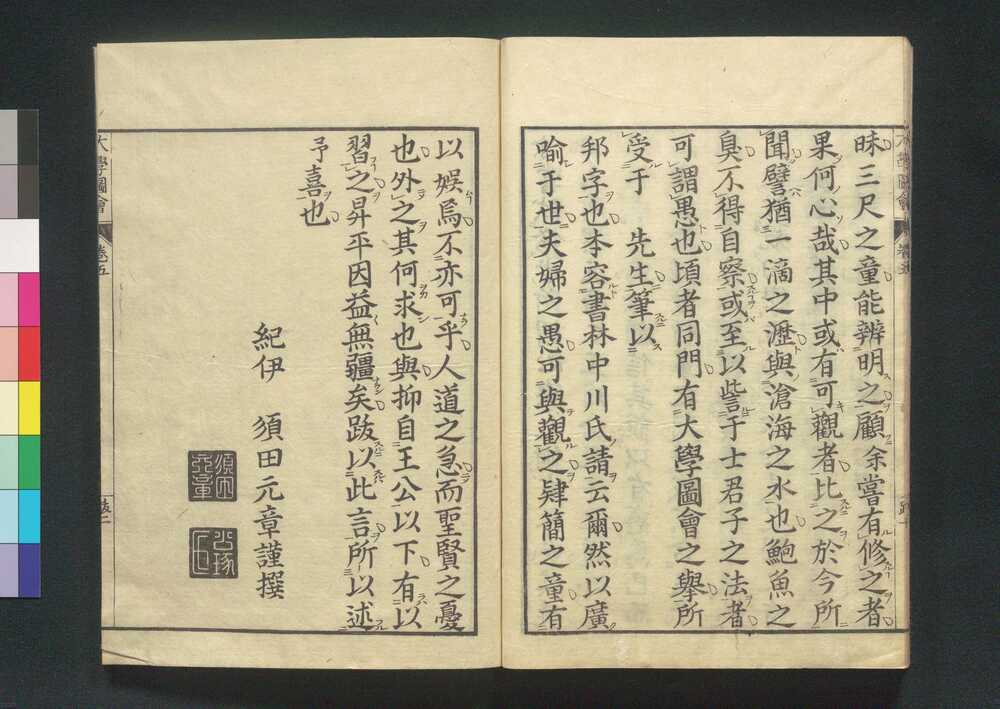 昧三尺之童能辨明之顧余嘗有修之者
果何心哉其中或有可觀者比之於今所
聞譬猶一滴之瀝與滄海之水也鮑魚之
臭不得自察或至以訾于士君子之法者
可謂愚也頃者同門有大學圖會之舉所
受于　先生筆以
邦字也本容書林中川氏請云爾然以廣
喻于世夫婦之愚可與觀之肄簡之童有
以娯焉不亦可乎人道之急而聖賢之憂
也外之其何求也與抑自王公以下有以
習之昇平因益無疆矣跋以此言所以述
予喜也
紀伊　須田元章謹撰
大學圖會
卷五
跋二